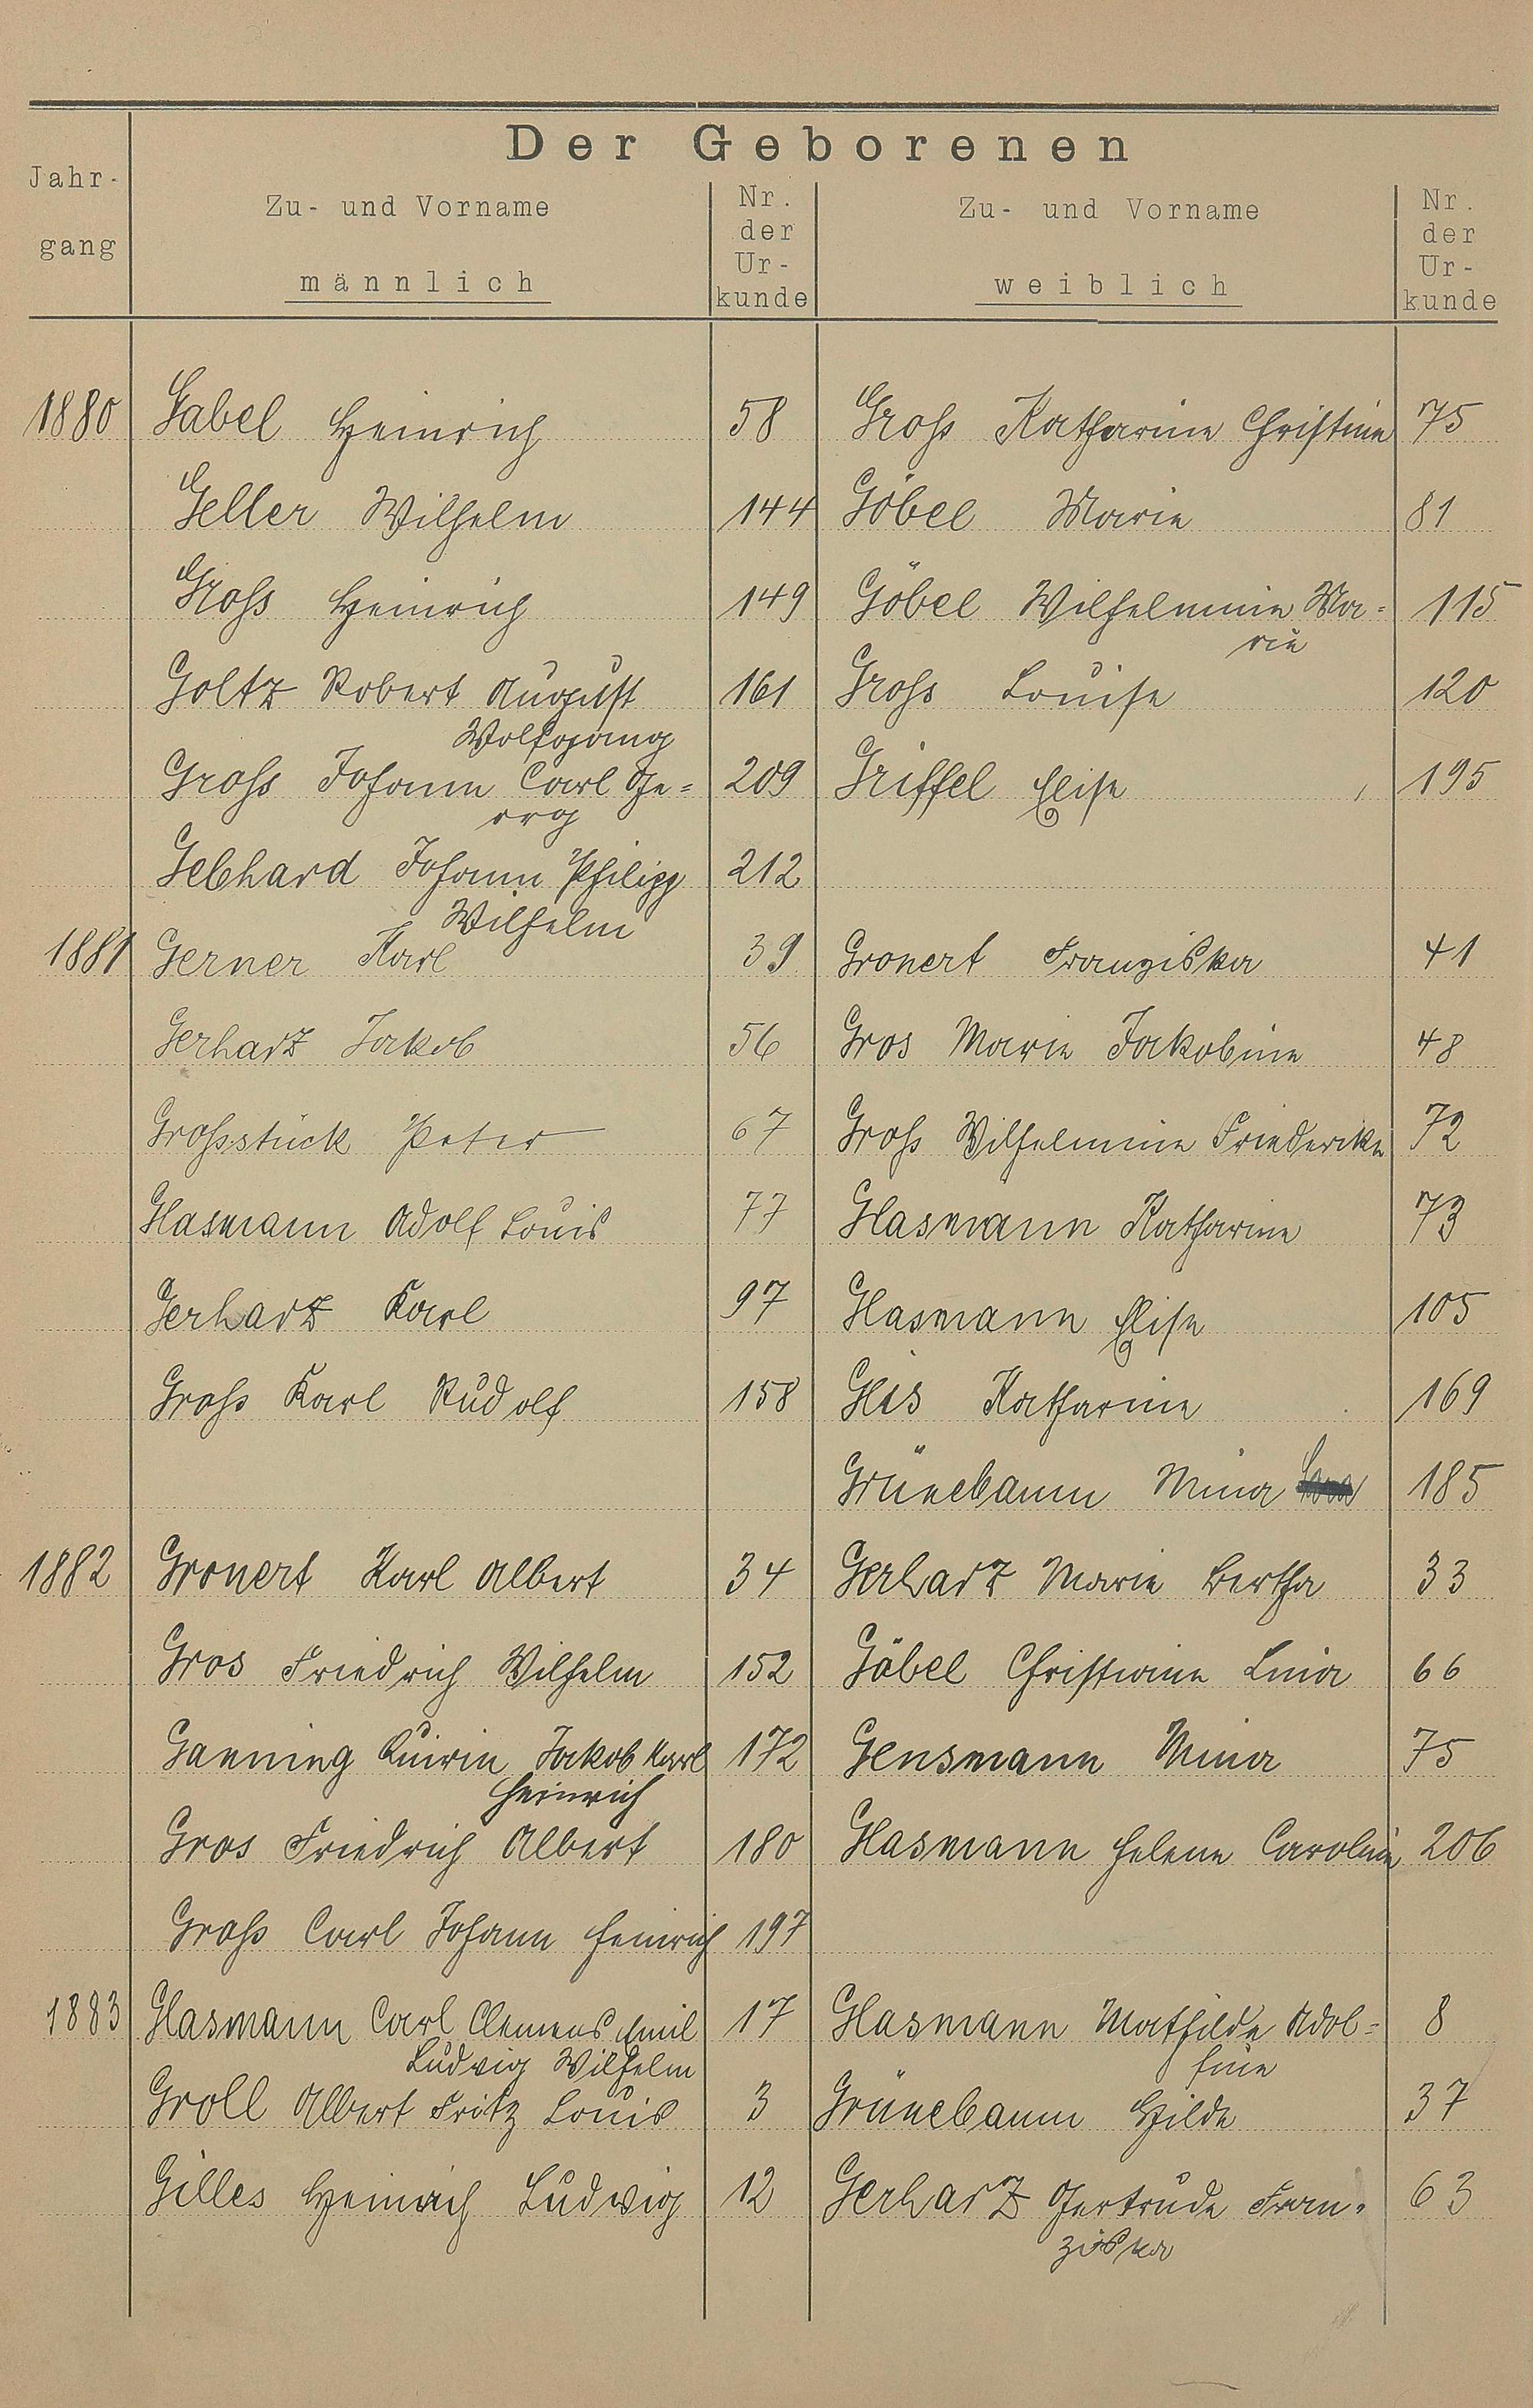 Der Geborenen
Jahr-
gang
Zu- und Vorname
männlich
Nr.
der
Ur-
kunde
Zu- und Vorname
weiblich
Nr.
der
Ur-
kunde
1880 Gabel Heinrich 58 Groß Katharine Christine 75
Geller Wilhelm 144 Göbel Marie 81
Groß Heinrich 149 Göbel Wilhelmine Ma= 115
rie
Goltz Robert August 161 Groß Louise 120
Wolfgang
Groß Johann Carl Ge= 209 Griffel Elise 195
org
Gebhard Johann Philipp 212
Wilhelm
1881 Gerner Karl 39 Gronert Franziska 41
Gerharz Jakob 56 Gros Marie Jakobine 48
Großstück Peter 67 Groß Wilhelmine Friederike 72
Glasmann Adolf Louis 77 Glasmann Katharine 73
Gerharz Karl 97 Glasmann Elise 105
Groß Karl Rudolf 158 Gles Katharine 169
Grünebaum Mina 185
1882 Gronert Karl Albert 34 Gerharz Marie Bertha 33
Gros Friedrich Wilhelm 152 Göbel Christiane Lina 66
Ganning Quirin Jakob Karl 172 Gensmann Mina 75
Heinrich
Gros Friedrich Albert 180 Glasmann Helene Caroline 206
Groß Carl Johann Heinrich 197
1883 Glasmann Carl Clemens Emil 17 Glasmann Mathilde Adol= 8
Ludwig Wilhelm
fine
Groll Albert Fritz Louis 3 Grünebaum Hilda 37
Gilles Heinrich Ludwig 12 Gerharz Gertrude Fran= 63
ziska